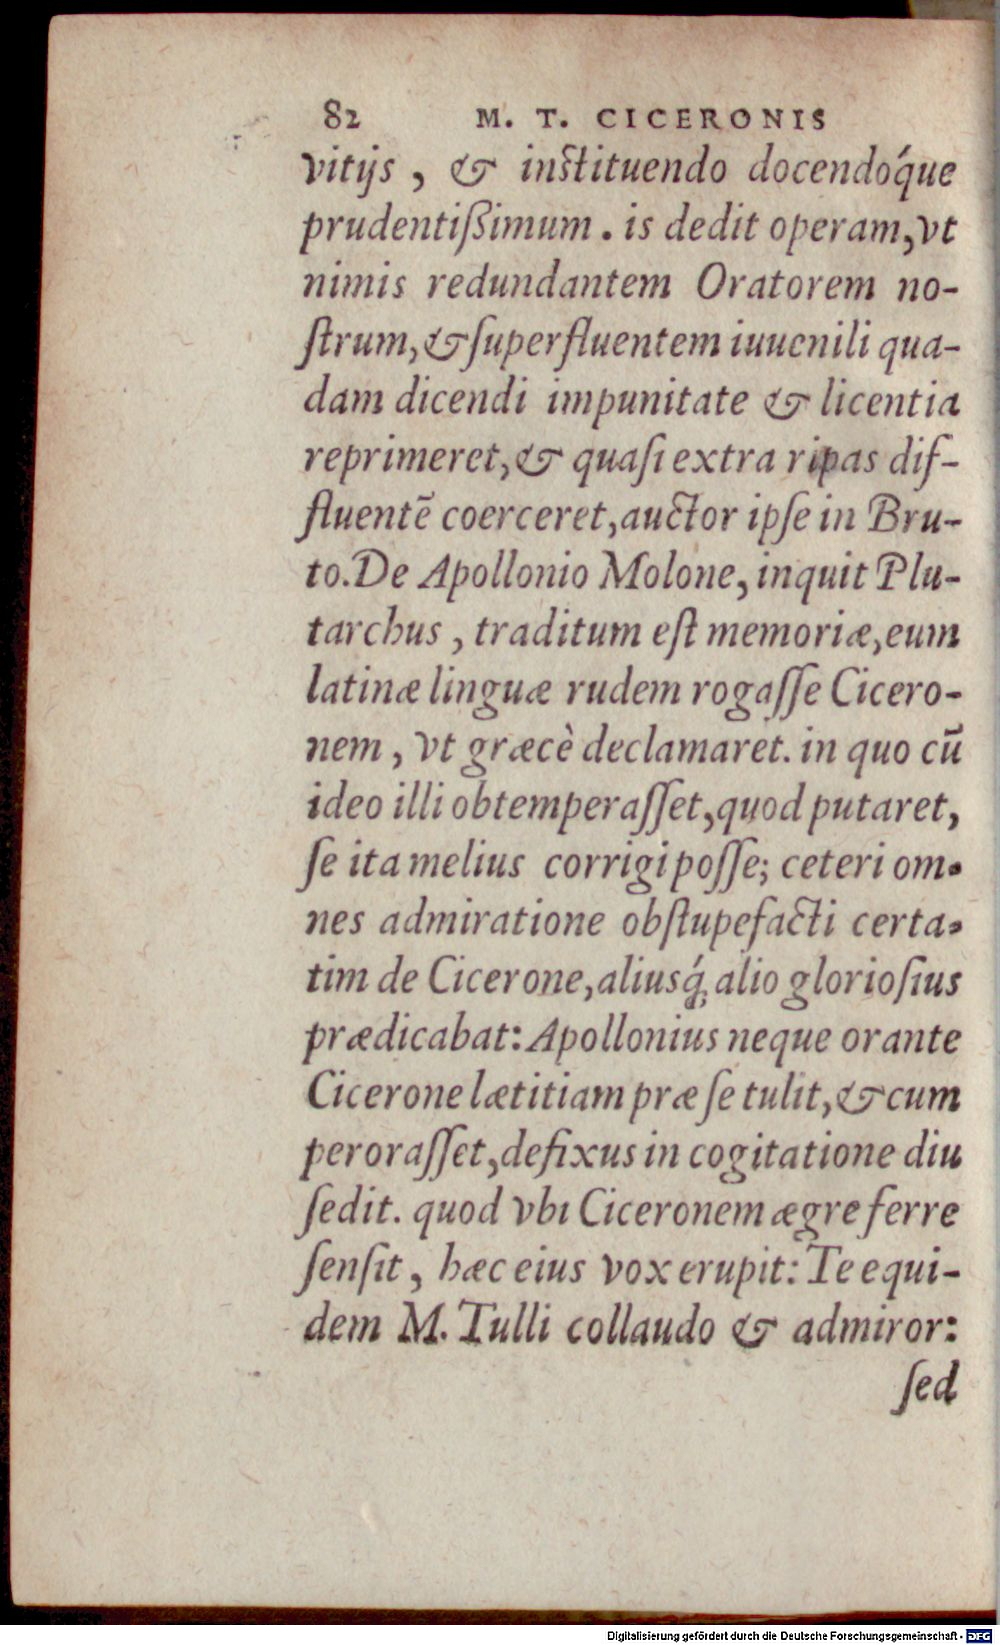 82 M. T. CICERONIS
vitijs, & instituendo docendóque
prudentißimum. is dedit operam, vt
nimis redundantem Oratorem no-
ſtrum, & ſuperfluentem iuuenili qua-
dam dicendi impunitate & licentia
reprimeret, & quaſi extra ripas dif-
fluentē coerceret, auctor ipſe in Bru-
to. De Apollonio Molone, inquit Plu-
tarchus, traditum eſt memoriæ, eum
latinæ linguæ rudem rogaſſe Cicero-
nem, vt græcè declamaret. in quo cū
ideo illi obtemperaſſet, quod putaret,
ſe ita melius corrigi poſſe; ceteri om-
nes admiratione obſtupefacti certa-
tim de Cicerone, aliusq́; alio glorioſius
prædicabat: Apollonius neque orante
Cicerone lætitiam præ ſe tulit, & cum
peroraſſet, defixus in cogitatione diu
ſedit. quod vbi Ciceronem ægre ferre
ſenſit, hæc eius vox erupit: Te equi-
dem M. Tulli collaudo & admiror:
ſed
Digitalisierung gefördert durch die Deutsche Forschungsgemeinschaft - DFG